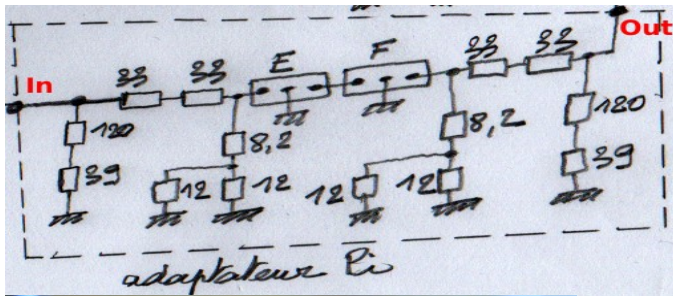 Out
In
33 33 E F 33 33
120 8,2 8,2 120
39 12 12 12 12 39
adaptateur Pi